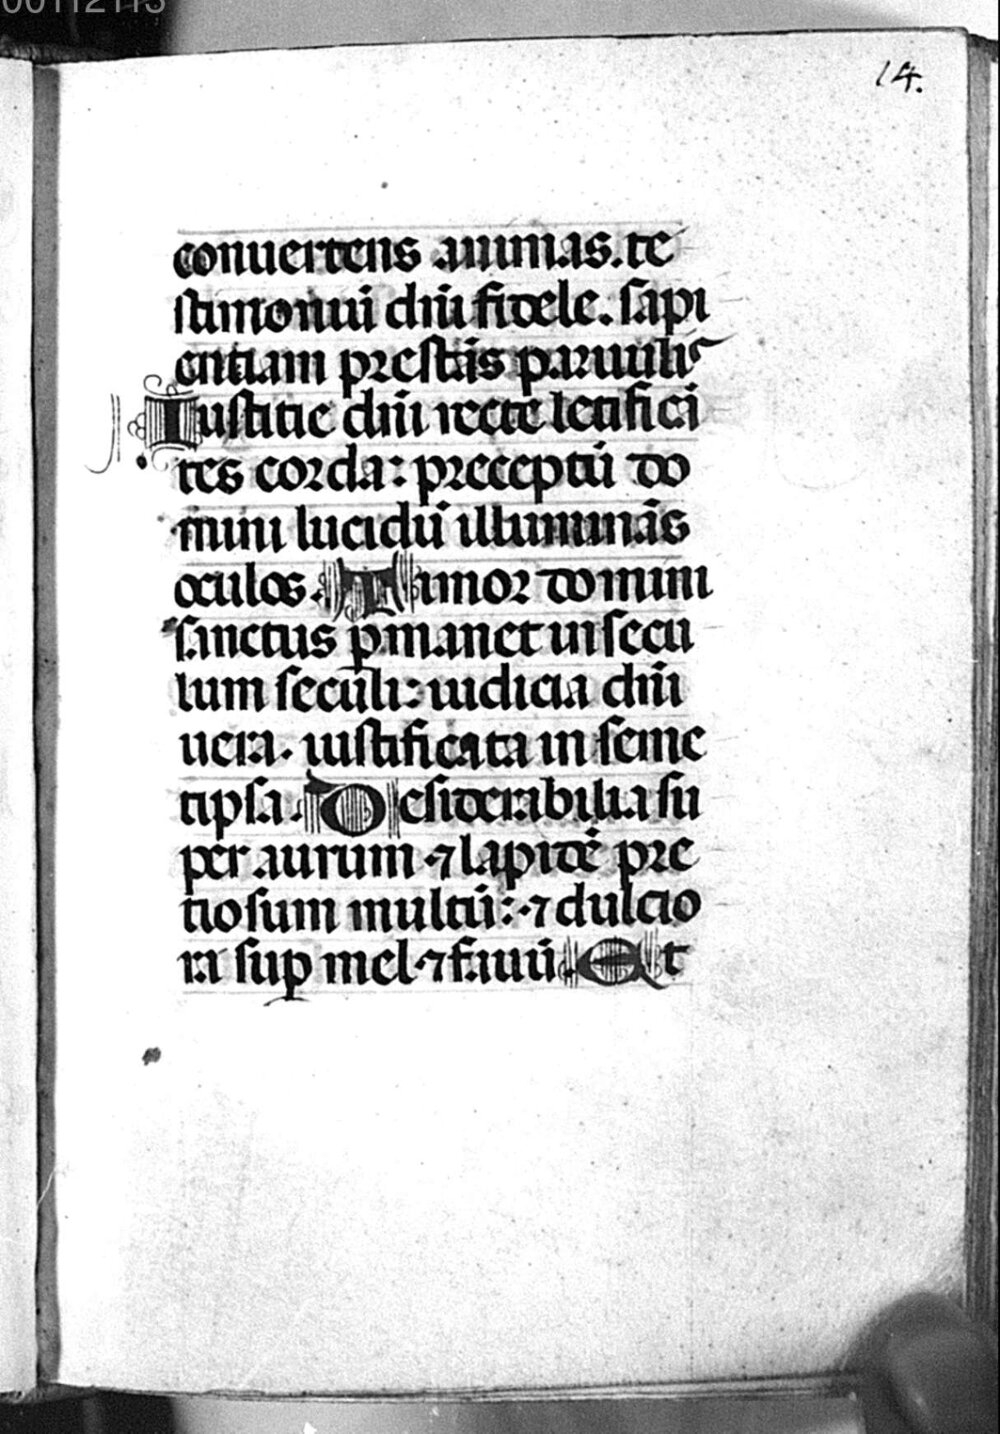 00112113
14.
conuertens animas. te
stimoniū dñi fidele. sapi
entiam prestās paruulis
Iustitie dñi recte letificā
tes corda: preceptū do
mini lucidū illuminās
oculos. Timor domini
sanctus ꝑmanet in secu
lum seculi: iudicia dñi
uera. iustificata in seme
tipsa. Desiderabilia su
per aurum ⁊ lapidē pre
tiosum multū: ⁊ dulcio
ra suꝑ mel ⁊ fauū. Et